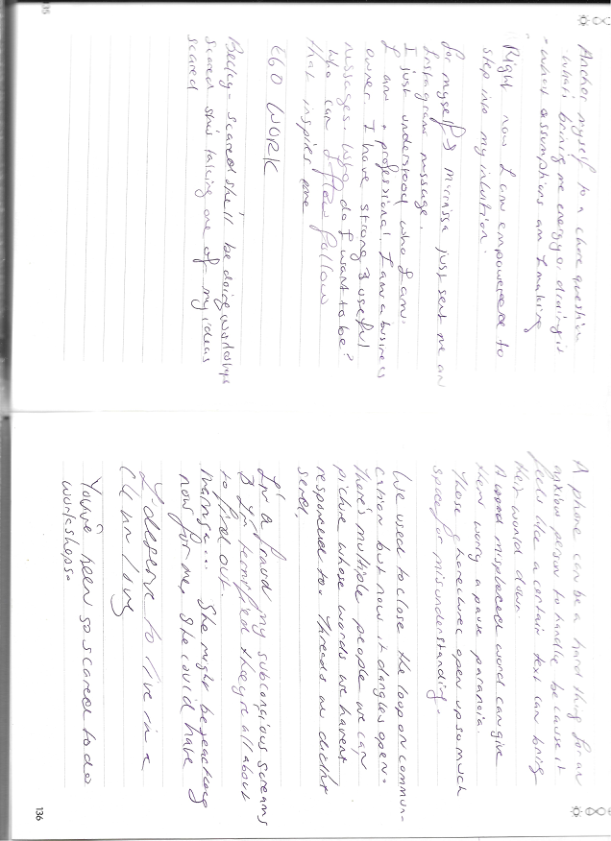 Anchor myself to a core question
- what's brining me energy or draining it
- what assumptions am I making
Right now I am empowered to
step into my intuition.
for myself → Marissa just sent me an
Instagram message.
I just understood who I am.
I am a professional. I am a business
owner. I have strong & useful
messages. Who do I want to be?
Who can I follow
that inspires me
EGO WORK
Becky - scared she'll be doing workshops
scared she's taking one of my ideas
scared
135
A phone can be a hard thing for an
anxious person to handle because it
feels like a certain text can bring
their world down.
A misplaced word can give
them worry a pause paranoia.
These fractures open up so much
space for misunderstanding.
We used to close the loop on commun-
ication but now it dangles open.
There's multiple people we can
picture whose words we havent
responded to. Threads we didnt
send.
I'm a fraud my subconcious screams
& I'm terrified they're all about
to find out.
She might be reaching
now for me, she could have
I deserve to live in a
clean
You've been so scared to do
workshops.
136